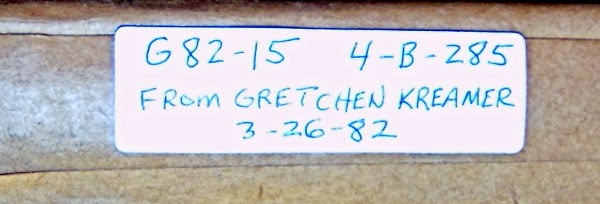 G82-15 4-B-285
FROM GRETCHEN KREAMER
3-26-82